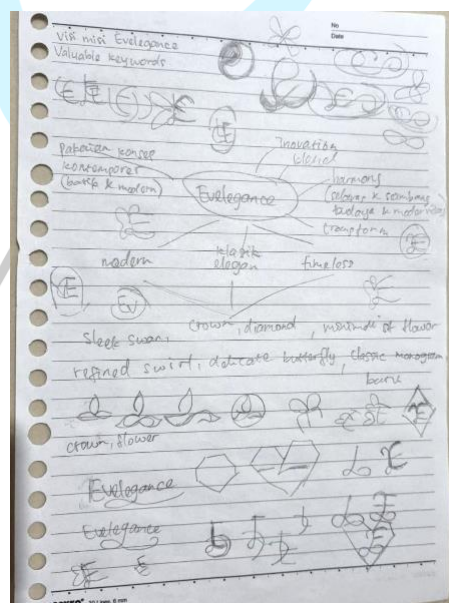 No
Date
Visi misi Evelegance
Valuable keywords
Pakaian konsep
kontemporer
(batik & modern)
Evelegance
inovation
klasik
harmoni
budaya & modernitas
transform
modern
klasik
elegan
timeless
Ev
sleek swan,
crown, diamond,
of flower
refined swirl, delicate butterfly, classic monogram
crown, flower
Evelegance
Evelegance